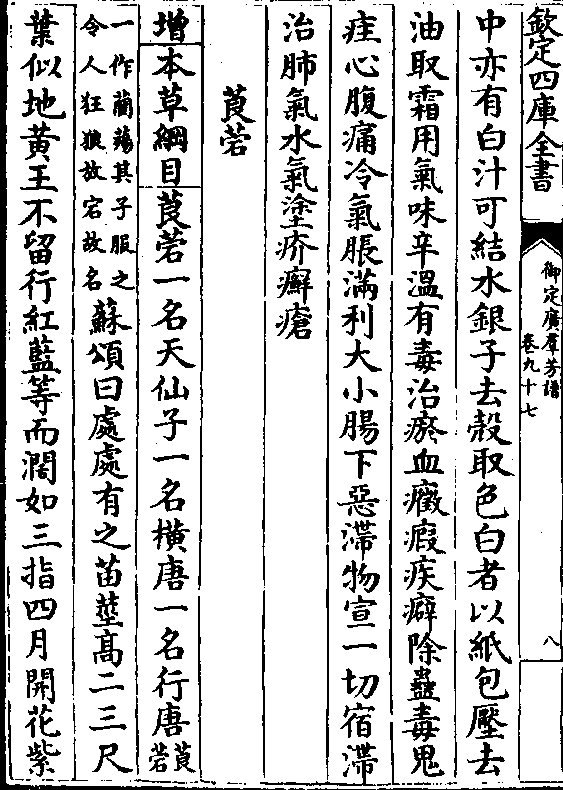 欽定四庫全書
御定廣群芳譜
卷九十七
八
中亦有白汁可結水銀子去殼取色白者以紙包壓去
油取霜用氣味辛溫有毒治瘀血癥瘕疾癖除蠱毒鬼
疰心腹痛冷氣脹滿利大小腸下惡滯物宣一切宿滯
治肺氣水氣塗疥癬瘡
莨菪
增本草綱目莨菪一名天仙子一名橫唐一名行唐莨菪
一作蘭蕩其子服之
令人狂狼放宕故名
蘇頌曰處處有之苗莖高二三尺
葉似地黃王不留行紅藍等而濶如三指四月開花紫